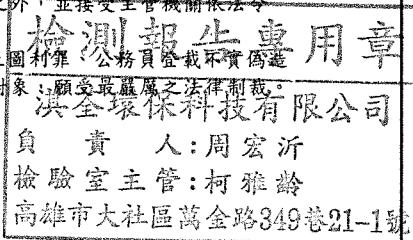 之外,並接受主管機關依法令
檢測報告專用章
上圖利罪、公務員登載不實偽造
對象,願受最嚴厲之法律制裁。
淇全環保科技有限公司
負責人:周宏沂
檢驗室主管:柯雅齡
高雄市大社區萬金路349巷21-1號